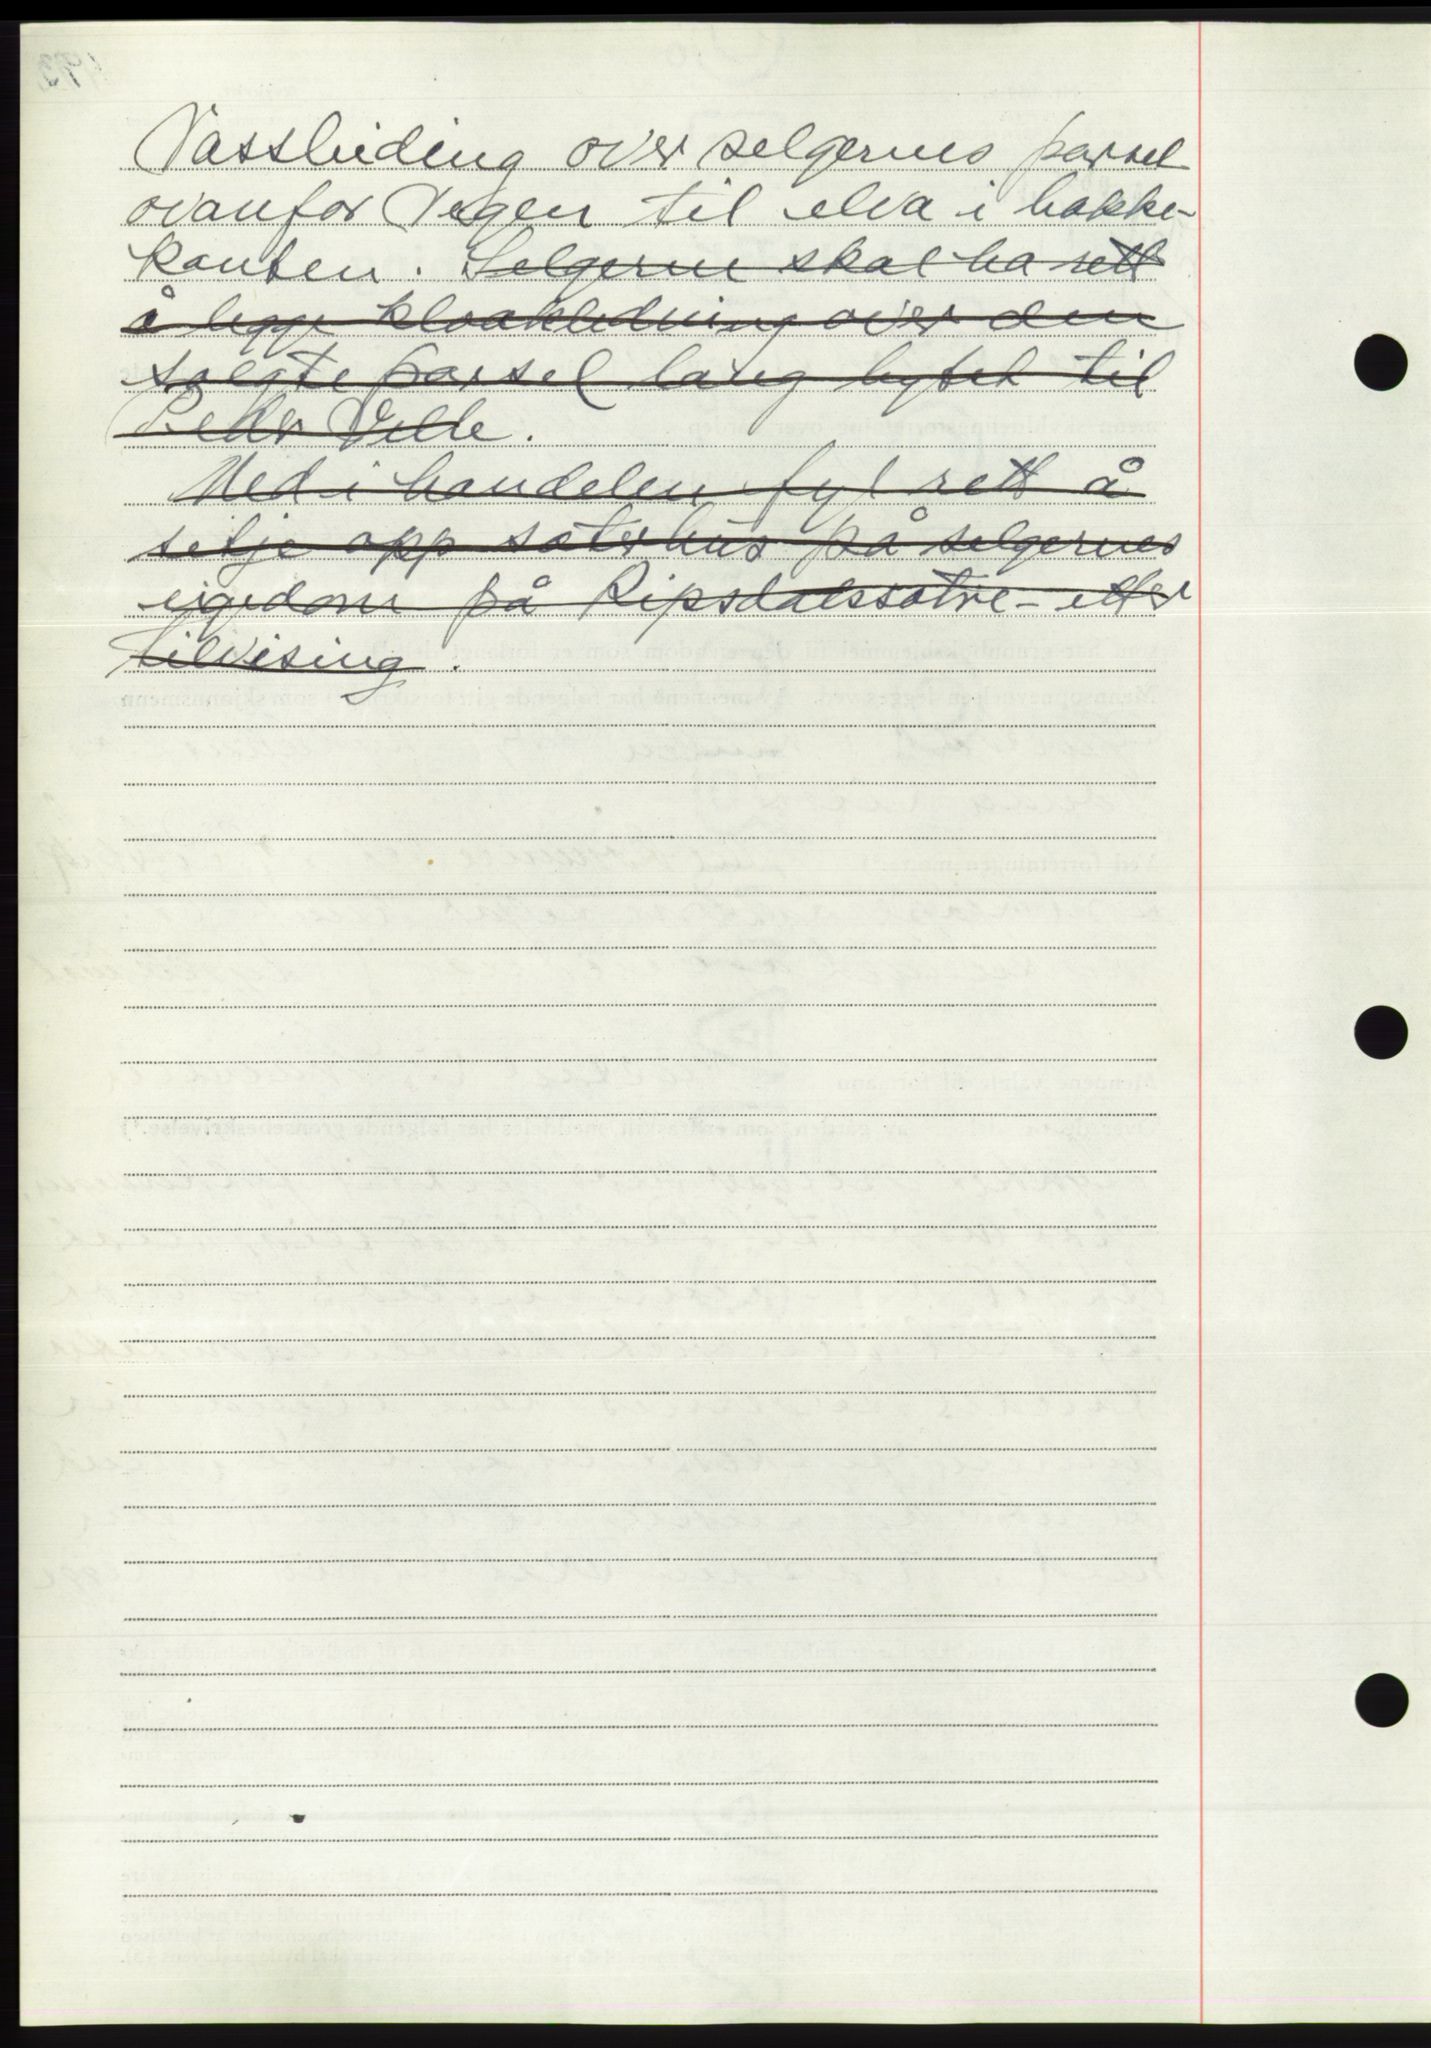 Vassleiding over selgernes parsel
ovanfor Vegen til elva i bakke-
kanten. Selgerne skal ha rett
å legge kloakkledning over den
solgte parsel lang bytet til
Peder Velle.
Med i handelen fyl rett å
setje opp soterhus på selgernes
eigedom på Ripsdalssotre - etter
tilvising.